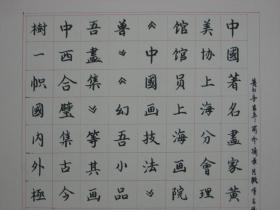 中國著名畫家黃
美協上海分會理
館館員上海畫院
《中國畫技法畫
《幻吾小品
吾畫集》等其畫
中西合璧集古今
樹一幟國內外極